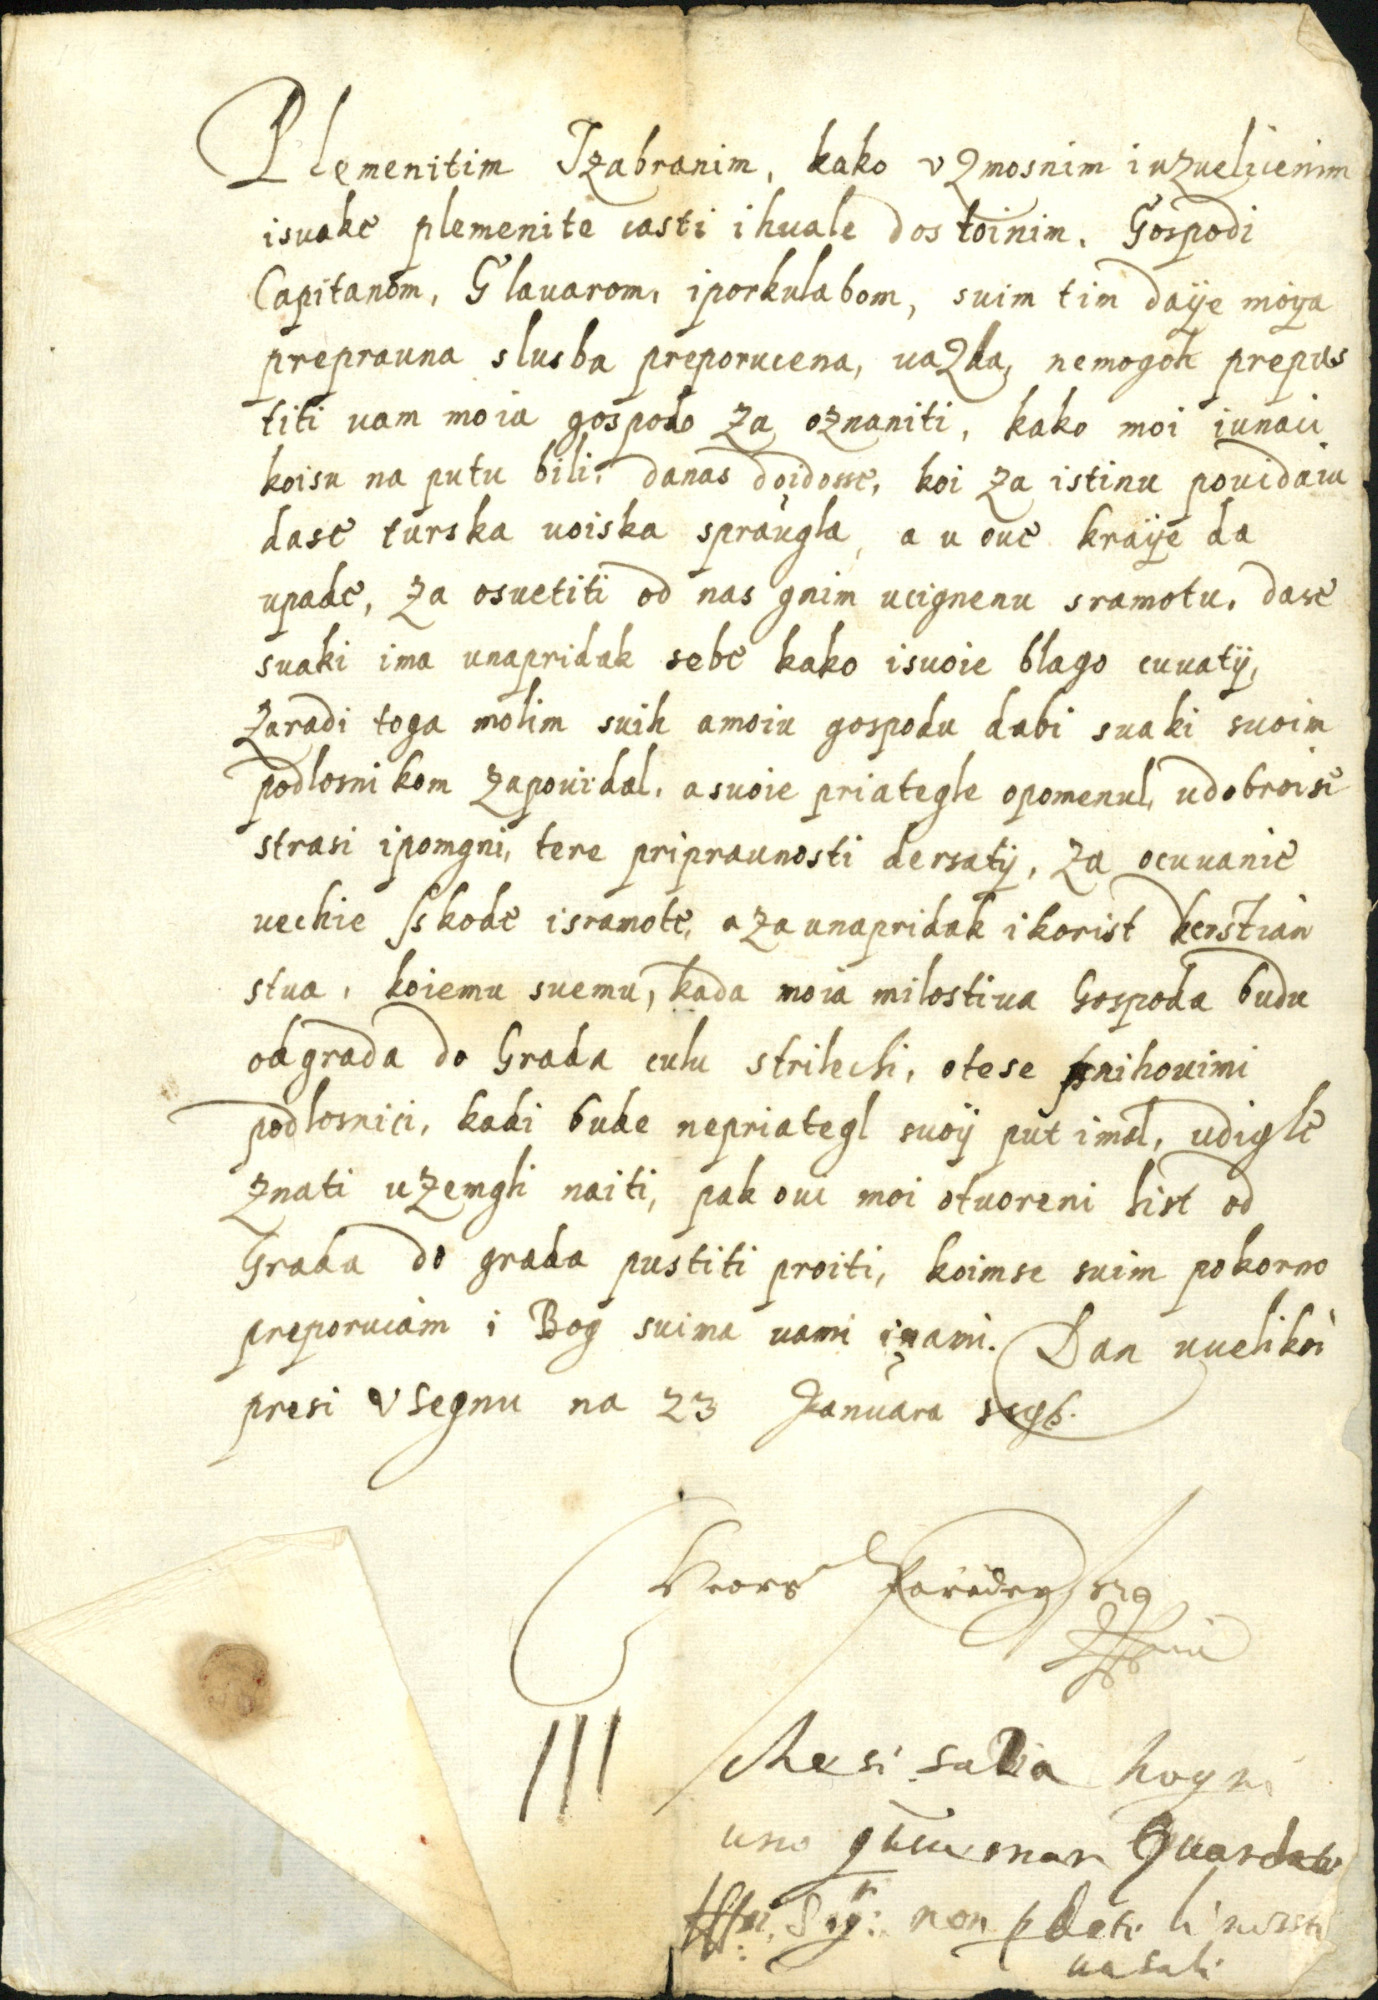 Plemenitim Izabranim, kako v zmosnim i uzuelicenim
isuake plemenite casti ihuale dostoinim. Gospodi
Capitanom, Glauarom, iporkulabom, suim tim daÿe moÿa
preprauna slusba preporucena, uazda, nemogoh prepus
titi uam moia gospodo za oznaniti, kako moi iunaci
koisu na putu bili, danas doidosse, koi za istinu pouidaiu
dase turska uoiska spraugla, a u oue kraÿe da
upade, za osuetiti od nas gnim ucignenu sramotu. dase
suaki ima unapridak sebe kako isuoie blago cuuatÿ,
zaradi toga molim suih amoiu gospodu dabi suaki suoim
podlosnikom zapouidal, asuoie priategle opomenul, udobroise
strasi ipomgni, tere pripraunosti dersatÿ, za ocuuanie
uechie sskode isramote, azaunapridak ikorist kerstian
stua, koiemu suemu, kada moia milostiua Gospoda budu
odgrada do Grada culu strilechi, otese gnihouimi
podlosnici, kadi bude nepriategl suoÿ put imal, udigle
znati uzemgli naiti, pak oui moi otuoreni list od
Grada do grada pustiti proiti, koimse suim pokorno
preporuciam i Bog suima uami inami. Dan uuelikoi
presi v Segnu na 23 Januara
non
uasali